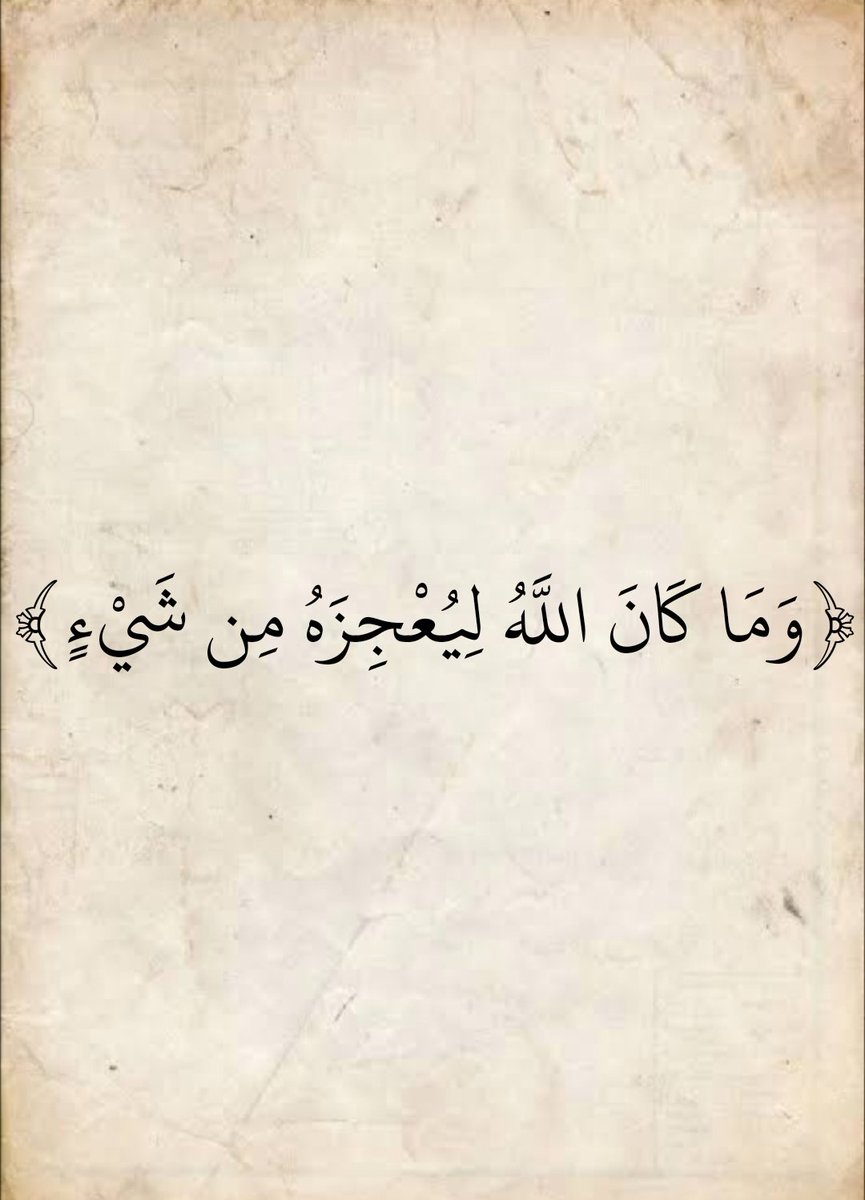 ﴿ وَمَا كَانَ اللَّهُ لِيُعْجِزَهُ مِن شَيْءٍ ﴾